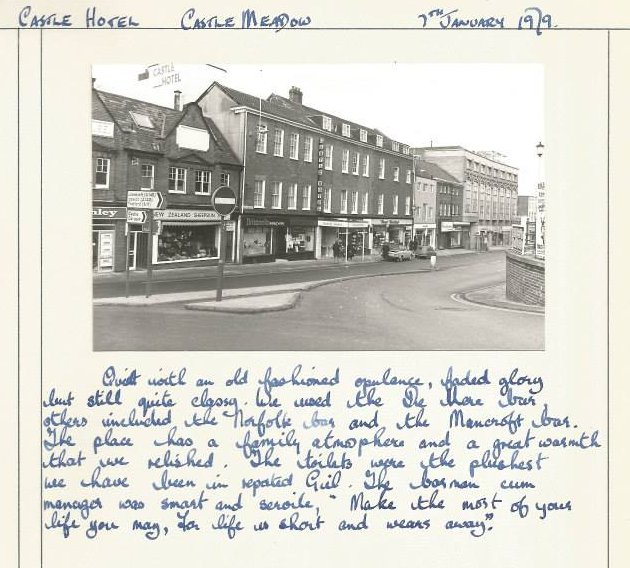 CASTLE HOTEL CASTLE MEADOW 7TH JANUARY 1979.
CASTLE
HOTEL
NEW ZEALAND SHEEPSKIN
with an old fashioned opulence, faded glory
but still quite classy. We used the De More bar,
others included the Norfolk bar and the Mancroft bar.
The place has a family atmosphere and a great warmth
that we relished. The toilets were the plushest
we have been in repoted Guil. The barman cum
manager was smart and servile, "Make the most of your
life you may, for life is short and wears away".